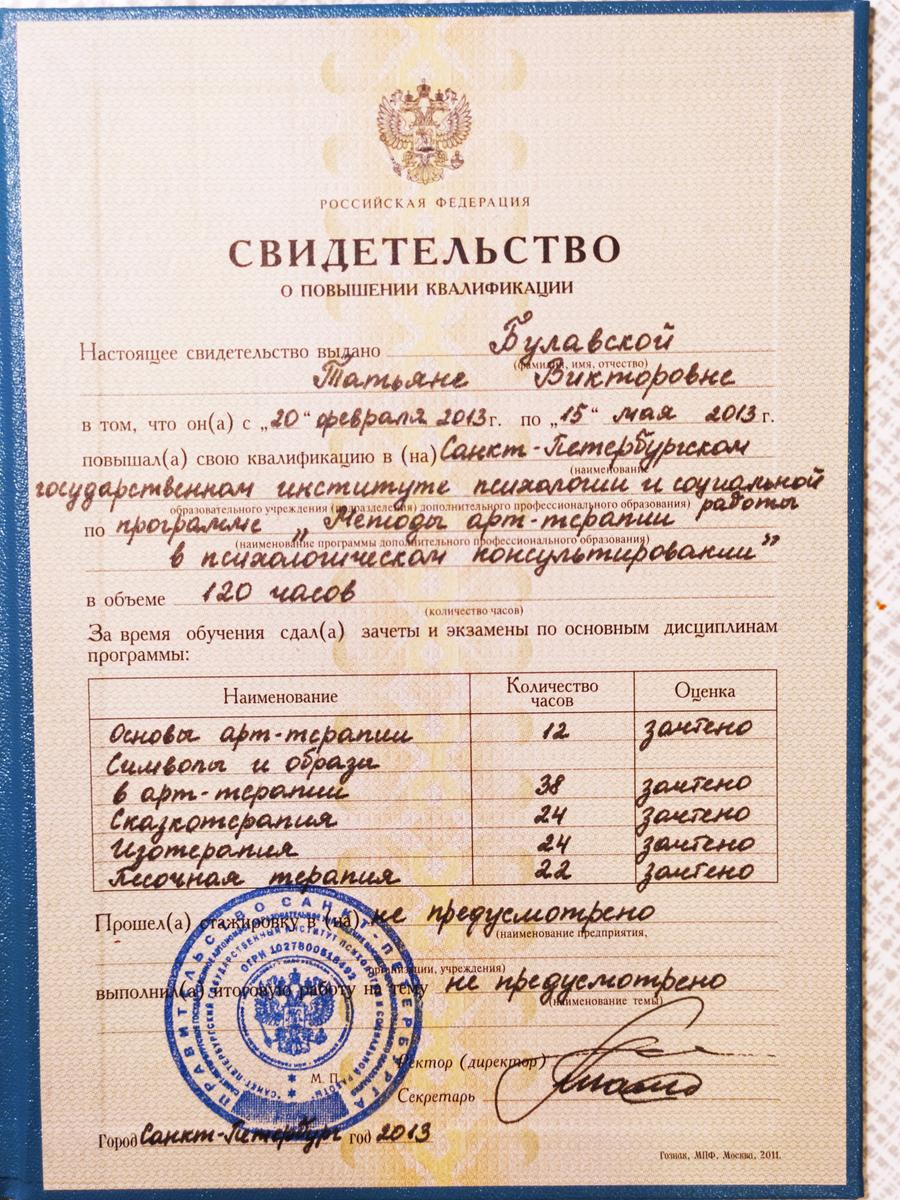 РОССИЙСКАЯ ФЕДЕРАЦИЯ
СВИДЕТЕЛЬСТВО
О ПОВЫШЕНИИ КВАЛИФИКАЦИИ
Настоящее свидетельство выдано Булавской
(фамилия, имя, отчество)
Татьяне Викторовне
в том, что он(а) с „20“ февраля 2013 г. по „15“ мая 2013 г.
повышал(а) свою квалификацию в (на) Санкт-Петербургском
(наименование
государственном институте психологии и социальной
образовательного учреждения (подразделения) дополнительного профессионального образования) работы
по программе „Методы арт-терапии
(наименование программы дополнительного профессионального образования)
в психологическом консультировании”
в объеме 120 часов
(количество часов)
За время обучения сдал(а) зачеты и экзамены по основным дисциплинам
программы:
Наименование Количество часов Оценка
Основы арт-терапии 12 зачтено
Символы и образы
в арт-терапии 38 зачтено
Сказкотерапия 24 зачтено
Изотерапия 24 зачтено
Песочная терапия 22 зачтено
Прошел(а) стажировку в (на) не предусмотрено
(наименование предприятия,
организации, учреждения)
выполнил(а) итоговую работу на тему не предусмотрено
(наименование темы)
ПРАВИТЕЛЬСТВО САНКТ-ПЕТЕРБУРГА
ОГРН 1027800518492
М. П.
Ректор (директор)
Секретарь
Город Санкт-Петербург год 2013
Гознак, МПФ, Москва, 2011.